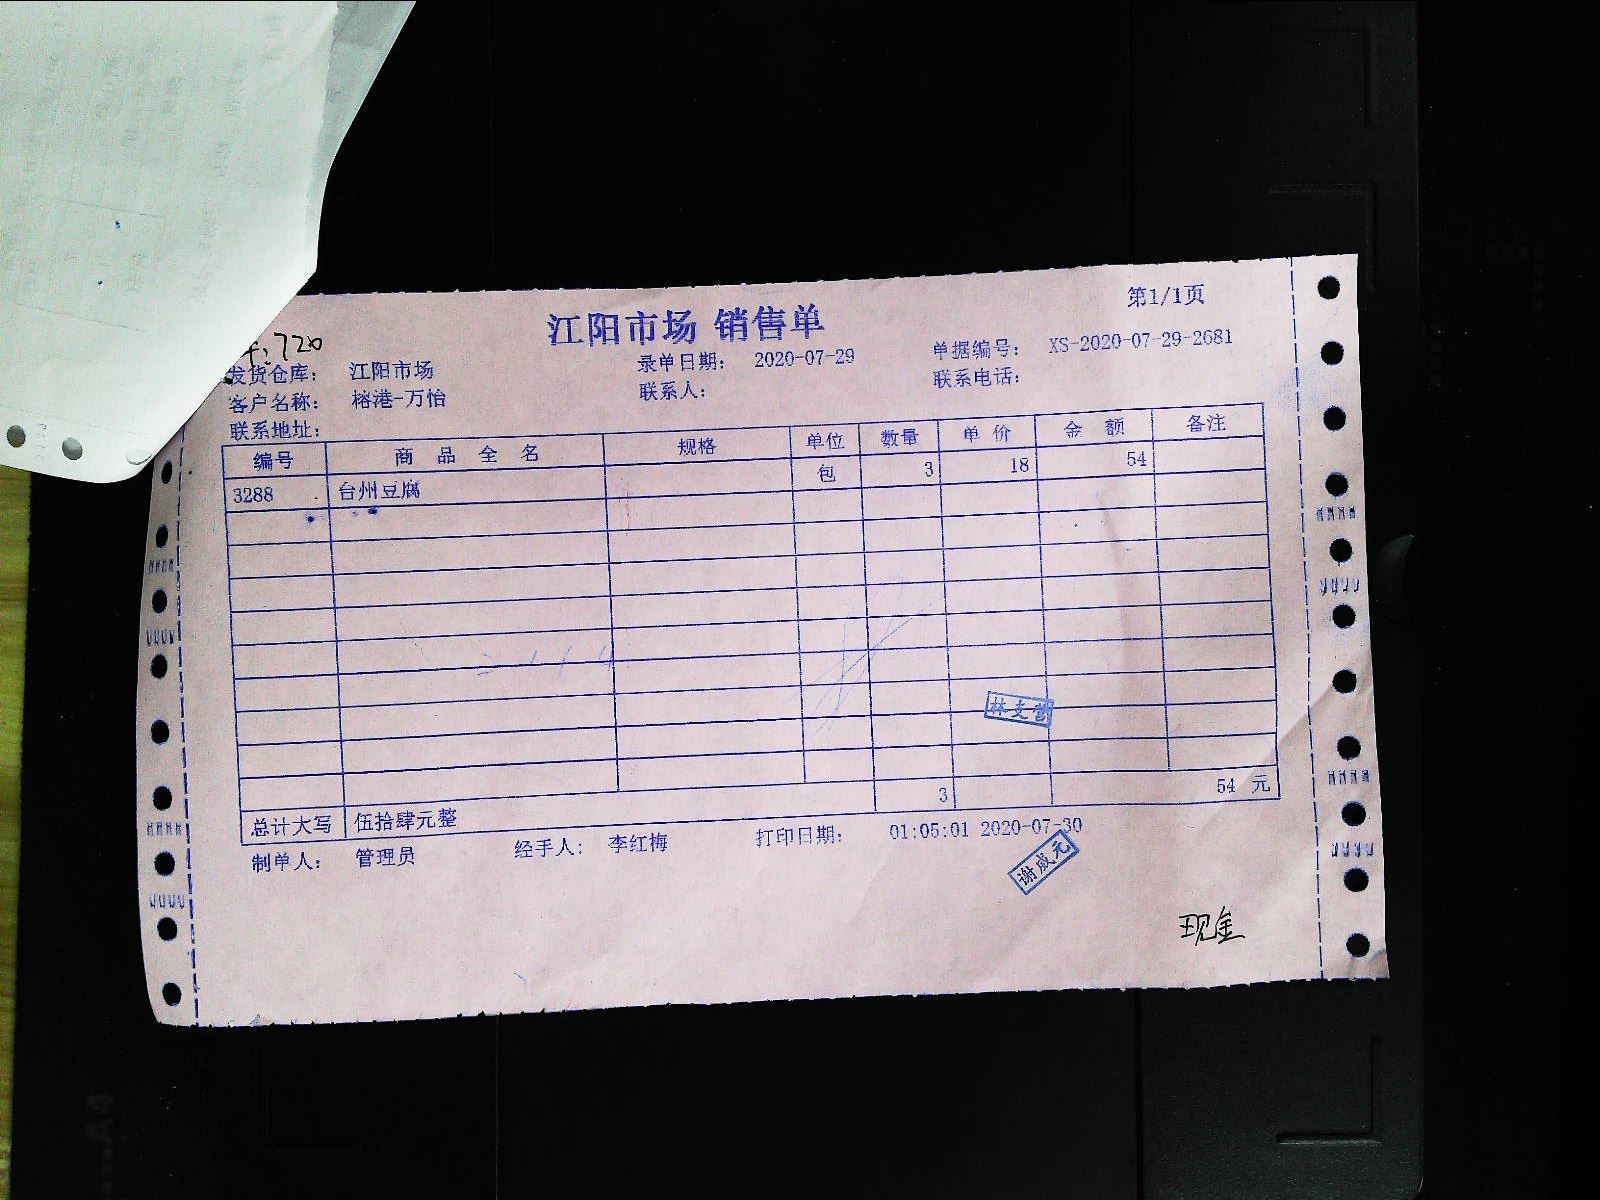 江阳市场 销售单
第1/1页
720
发货仓库: 江阳市场 录单日期: 2020-07-29 单据编号: XS-2020-07-29-2681
客户名称: 榕港-万怡 联系人: 联系电话:
联系地址:
编号 商品全名 规格 单位 数量 单价 金额 备注
3288 台州豆腐 包 3 18 54
3 54 元
总计大写 伍拾肆元整
制单人: 管理员 经手人: 李红梅 打印日期: 01:05:01 2020-07-30
谢威元
现金
A4